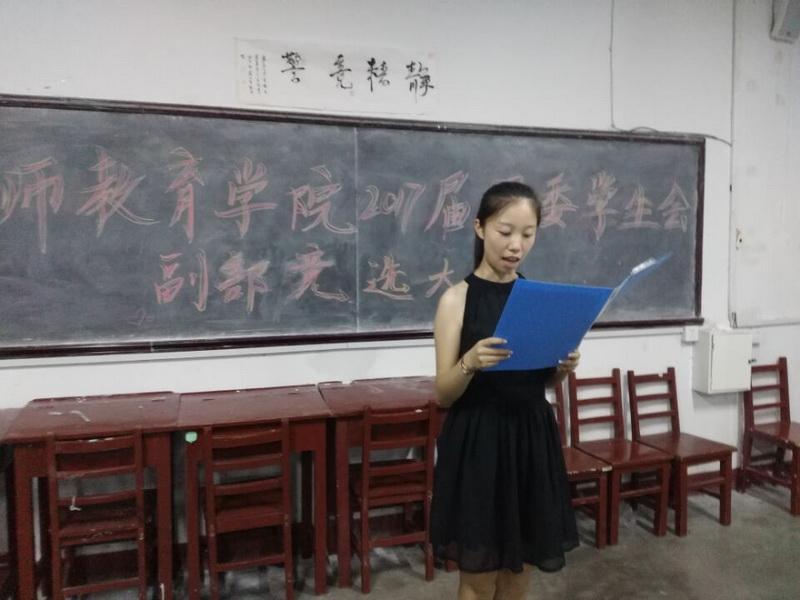 静精竞警
师教育学院2017届 委学生会
副部竞选大